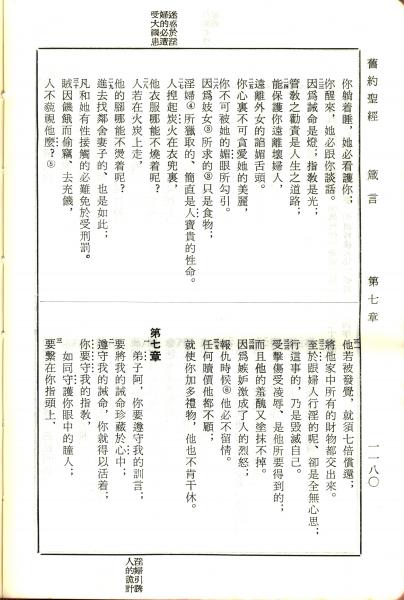 舊約聖經　箴言　第七章　一一八〇
迷惑於淫
婦的必遭
受大禍患
你躺着睡,她必看護你;
你醒來,她必跟你談話。
因爲誡命是燈;指教是光;
管教之勸責是人生之道路;
能保護你遠離壞婦人,
遠離外女的諂媚舌頭。
你心裏不可貪愛她的美麗,
你不可被她的媚眼所勾引。
因爲妓女③所求的③只是食物;
淫婦④所獵取的、簡直是人寶貴的性命。
人揑起炭火在衣兜裏,
他衣服哪能不燒着呢?
人若在火炭上走,
他的腳哪能不燙着呢?
進去找鄰舍妻子的、也是如此;
凡和她有性接觸的必難免於受刑罰。
賊因饑餓而偷竊、去充饑,
人不藐視他麼?⑤
他若被發覺,就須七倍償還;
將他家中所有的財物都交出來。
至於跟婦人行淫的呢、卻是全無心思;
行這事的,乃是毀滅自己。
受擊傷受凌辱、是他所要得到的;
而且他的羞醜又塗抹不掉。
因爲嫉妒激成了人的烈怒;
報仇時候⑥他必不留情。
任何贖價他都不顧;
就使你加多禮物,他也不肯干休。
第七章
弟子阿,你要遵守我的訓言;
要將我的誡命珍藏於心中;
二遵守我的誡命,你就得以活着;
你要守我的指教,
如同守護你眼中的瞳人;
三要繫在你指頭上、
淫婦引誘
人的詭計